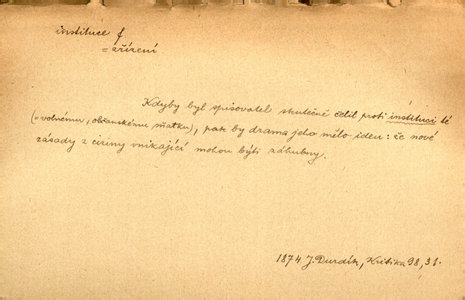 instituce f
= zřízení
Kdyby byl spisovatel skutečně čelil proti instituci té
(= volnému, občanskému sňatku), pak by drama jeho mělo ideu: že nové
zásady z ciziny vnikající mohou býti záhubny.
1874 J. Durdík, Kritika 98, 31.